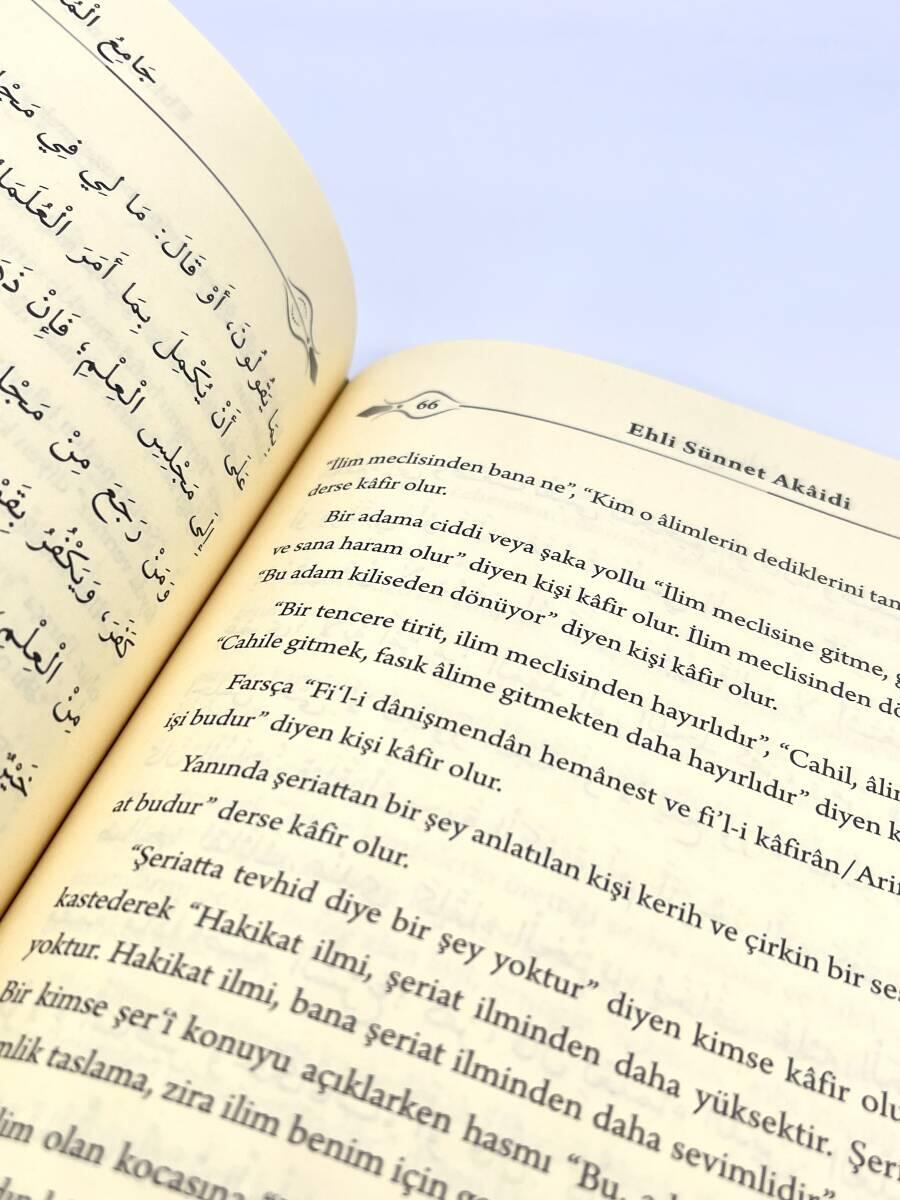 جَامِعُ
بِمَا يَقُولُونَ، أَوْ قَالَ: مَا لِي فِي
عَلَى أَنْ يُكْمِلَ بِمَا أَمَرَ
إِلَى مَجْلِسِ الْعِلْمِ؛ فَإِنْ
وَمَنْ رَجَعَ مِنْ
كَفَرَ، وَيَكْفُرُ
مِنْ الْعِلْمِ
خَيْرٌ
66
Ehli Sünnet Akâidi
“İlim meclisinden bana ne”, “Kim o âlimlerin dediklerini
derse kâfir olur.
Bir adama ciddi veya şaka yollu “İlim meclisine gitme,
ve sana haram olur” diyen kişi kâfir olur. İlim meclisinden
“Bu adam kiliseden dönüyor” diyen kişi kâfir olur.
“Bir tencere tirit, ilim meclisinden hayırlıdır”, “Cahil,
“Cahile gitmek, fasık âlime gitmekten daha hayırlıdır” diyen
Farsça “Fi‘l-i dânişmendân hemânest ve fi’l-i kâfirân/
işi budur” diyen kişi kâfir olur.
Yanında şeriattan bir şey anlatılan kişi kerih ve çirkin bir
at budur” derse kâfir olur.
“Şeriatta tevhid diye bir şey yoktur” diyen kimse kâfir
kastederek “Hakikat ilmi, şeriat ilminden daha yüksektir.
yoktur. Hakikat ilmi, bana şeriat ilminden daha sevimlidir”
Bir kimse şer‘î konuyu açıklarken hasmı “Bu,
taslama, zira ilim benim için
olan kocasına